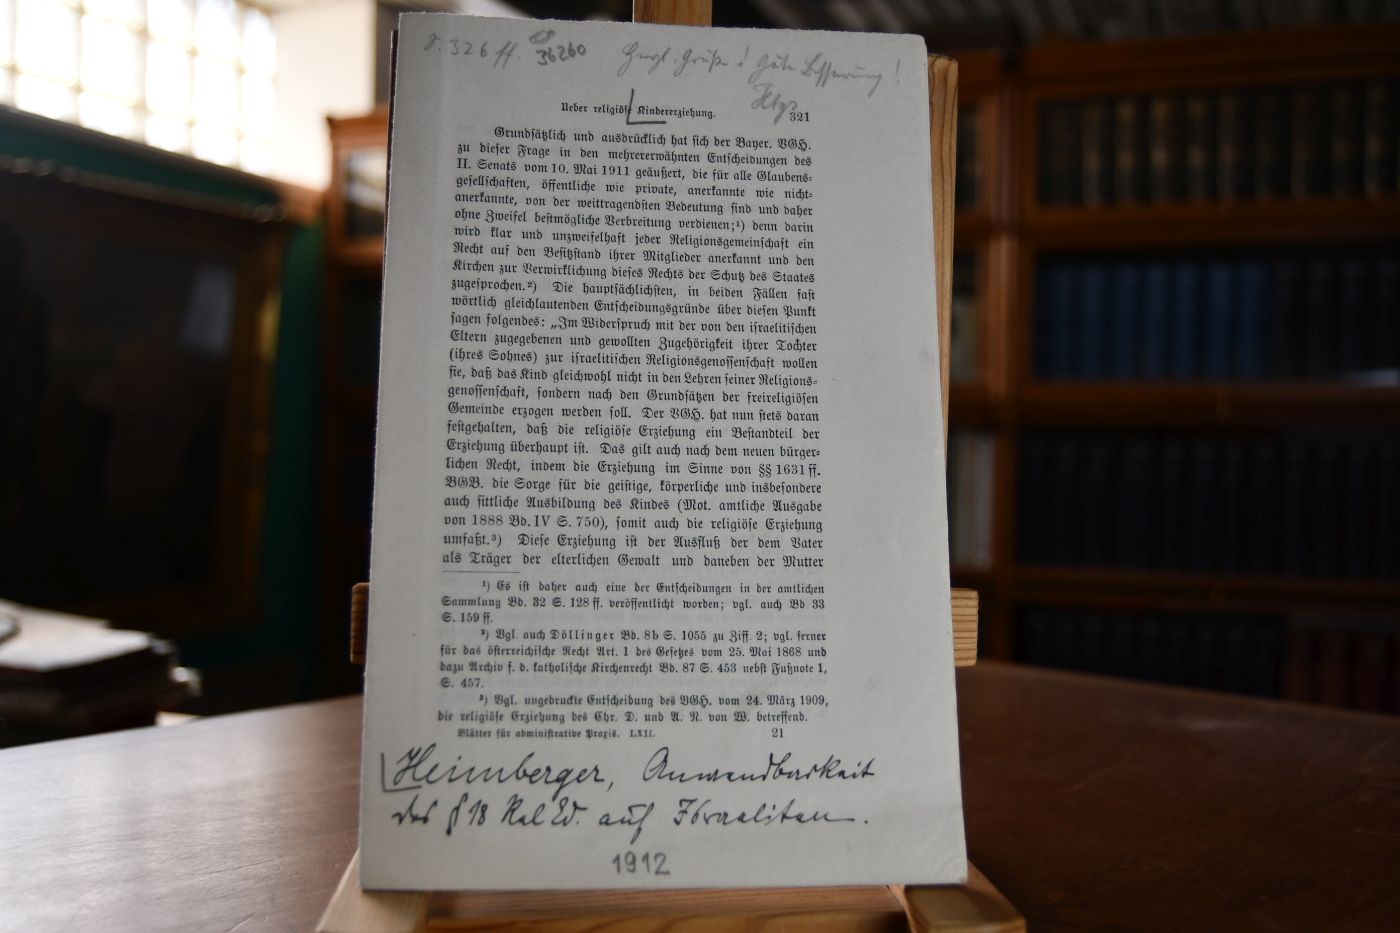 S. 326 ff. 36260 Herzl. Grüße! Gute Besserung!
Hbgr
Ueber religiöse Kindererziehung. 321
Grundsätzlich und ausdrücklich hat sich der Bayer. VGH.
zu dieser Frage in den mehrerwähnten Entscheidungen des
II. Senats vom 10. Mai 1911 geäußert, die für alle Glaubens-
gesellschaften, öffentliche wie private, anerkannte wie nicht-
anerkannte, von der weittragendsten Bedeutung sind und daher
ohne Zweifel bestmögliche Verbreitung verdienen;¹) denn darin
wird klar und unzweifelhaft jeder Religionsgemeinschaft ein
Recht auf den Besitzstand ihrer Mitglieder anerkannt und den
Kirchen zur Verwirklichung dieses Rechts der Schutz des Staates
zugesprochen.²) Die hauptsächlichsten, in beiden Fällen fast
wörtlich gleichlautenden Entscheidungsgründe über diesen Punkt
sagen folgendes: „Im Widerspruch mit der von den israelitischen
Eltern zugegebenen und gewollten Zugehörigkeit ihrer Tochter
(ihres Sohnes) zur israelitischen Religionsgenossenschaft wollen
sie, daß das Kind gleichwohl nicht in den Lehren seiner Religions-
genossenschaft, sondern nach den Grundsätzen der freireligiösen
Gemeinde erzogen werden soll. Der VGH. hat nun stets daran
festgehalten, daß die religiöse Erziehung ein Bestandteil der
Erziehung überhaupt ist. Das gilt auch nach dem neuen bürger-
lichen Recht, indem die Erziehung im Sinne von §§ 1631 ff.
BGB. die Sorge für die geistige, körperliche und insbesondere
auch sittliche Ausbildung des Kindes (Mot. amtliche Ausgabe
von 1888 Bd. IV S. 750), somit auch die religiöse Erziehung
umfaßt.³) Diese Erziehung ist der Ausfluß der dem Vater
als Träger der elterlichen Gewalt und daneben der Mutter
¹) Es ist daher auch eine der Entscheidungen in der amtlichen
Sammlung Bd. 32 S. 128 ff. veröffentlicht worden; vgl. auch Bd 33
S. 159 ff.
²) Vgl. auch Döllinger Bd. 8b S. 1055 zu Ziff. 2; vgl. ferner
für das österreichische Recht Art. 1 des Gesetzes vom 25. Mai 1868 und
dazu Archiv f. d. katholische Kirchenrecht Bd. 87 S. 453 nebst Fußnote 1,
S. 457.
³) Vgl. ungedruckte Entscheidung des VGH. vom 24. März 1909,
die religiöse Erziehung des Chr. D. und A. N. von W. betreffend.
Blätter für administrative Praxis. LXII. 21
Heimberger, Anwendbarkeit
des § 18 Rel Ed. auf Israeliten.
1912